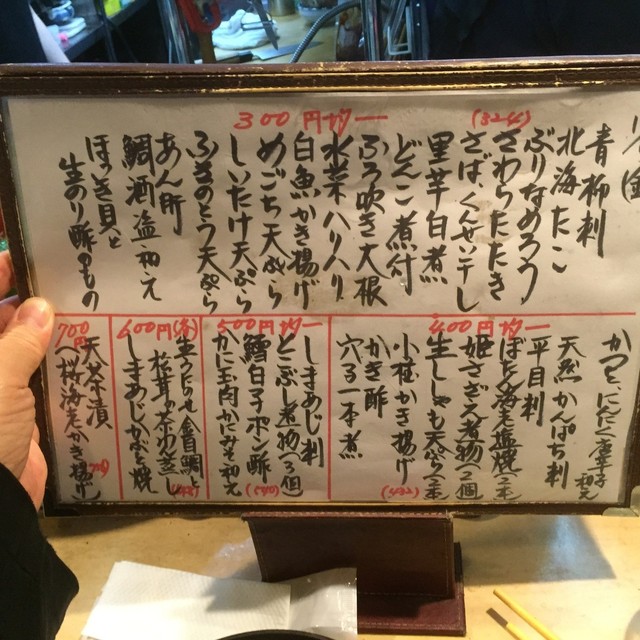 300円均一 (324)
青柳刺
北海たこ
ぶりなめろう
さわらたたき
さば、くんせい干し
里芋白煮
どんこ煮付
ふろ吹き大根
水菜ハリハリ
白魚かき揚げ
めごち天ぷら
しいたけ天ぷら
ふきのとう天ぷら
あん肝
鯛酒盗和え
ほっき貝と
生のり酢のもの
400円均一
かつを、にんにく醤油和え
天然かんぱち刺
平目刺
ぼたん海老塩焼(二本)
姫さざえ煮物(八個)
生ししゃも天ぷら(二本)
小柱かき揚げ
かき酢
穴子一本煮
(432)
500円均一
しまあじ刺
とこぶし煮物(3個)
鱈白子ポン酢
かに玉肉かにみそ和え
(540)
600円(各)
生うにのせ金目鯛と
松茸の茶わん蒸し
しまあじかぶと焼
(648)
700円
天茶漬
(桜海老かき揚げ)